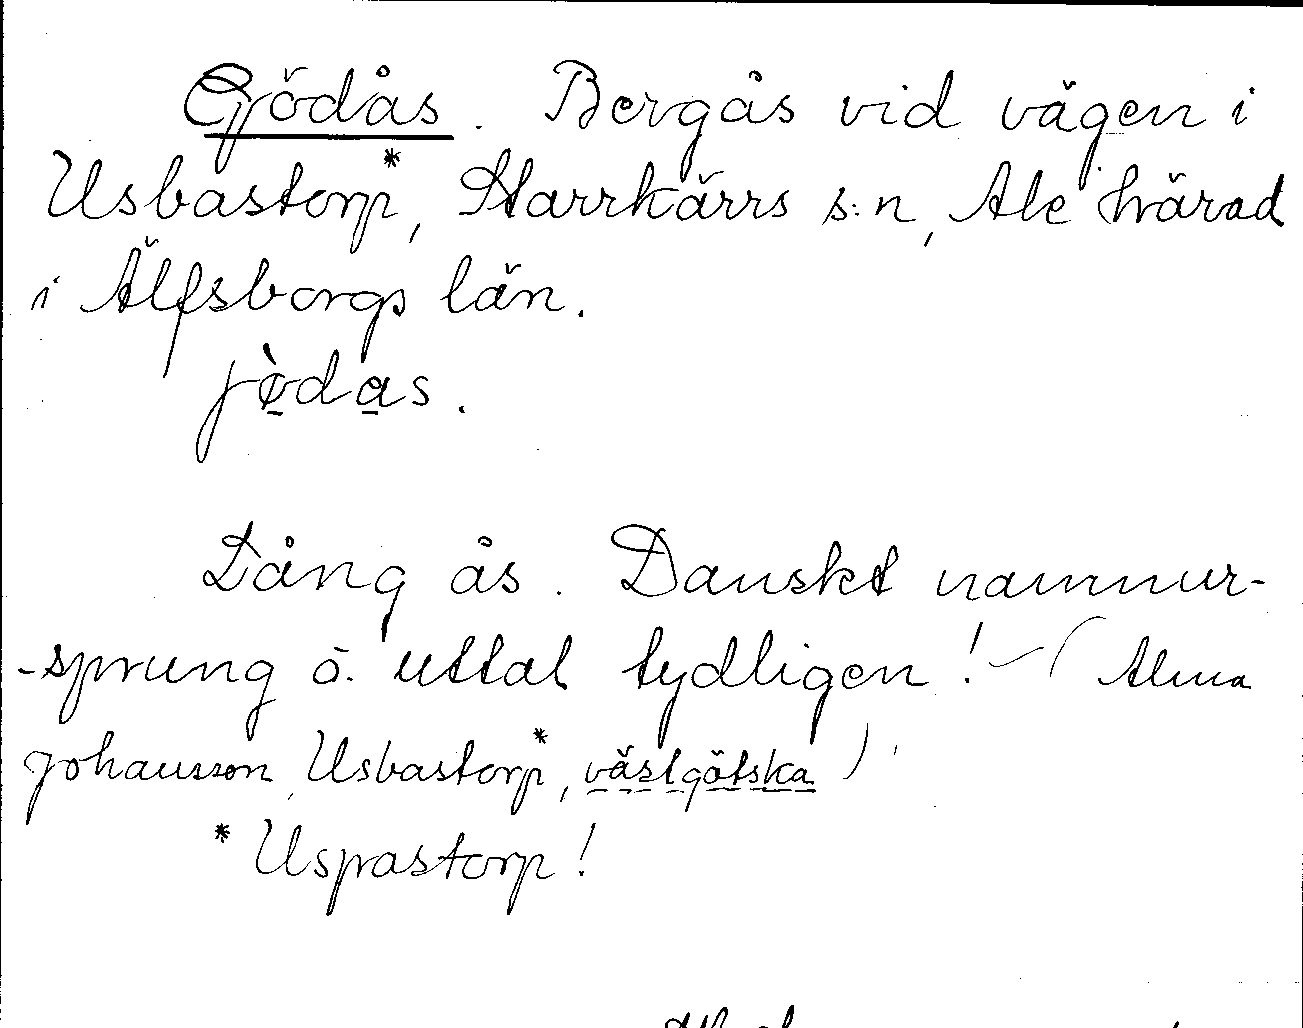 Gödås. Bergås vid vägen i
Usbastorp*, Starrkärrs s:n, Ale härad
i Älfsborgs län.
jòdas.
Lång ås. Danskt namnur-
-sprung o. uttal tydligen! – (Alma
Johansson, Usbastorp*, västgötska)
* Uspastorp!